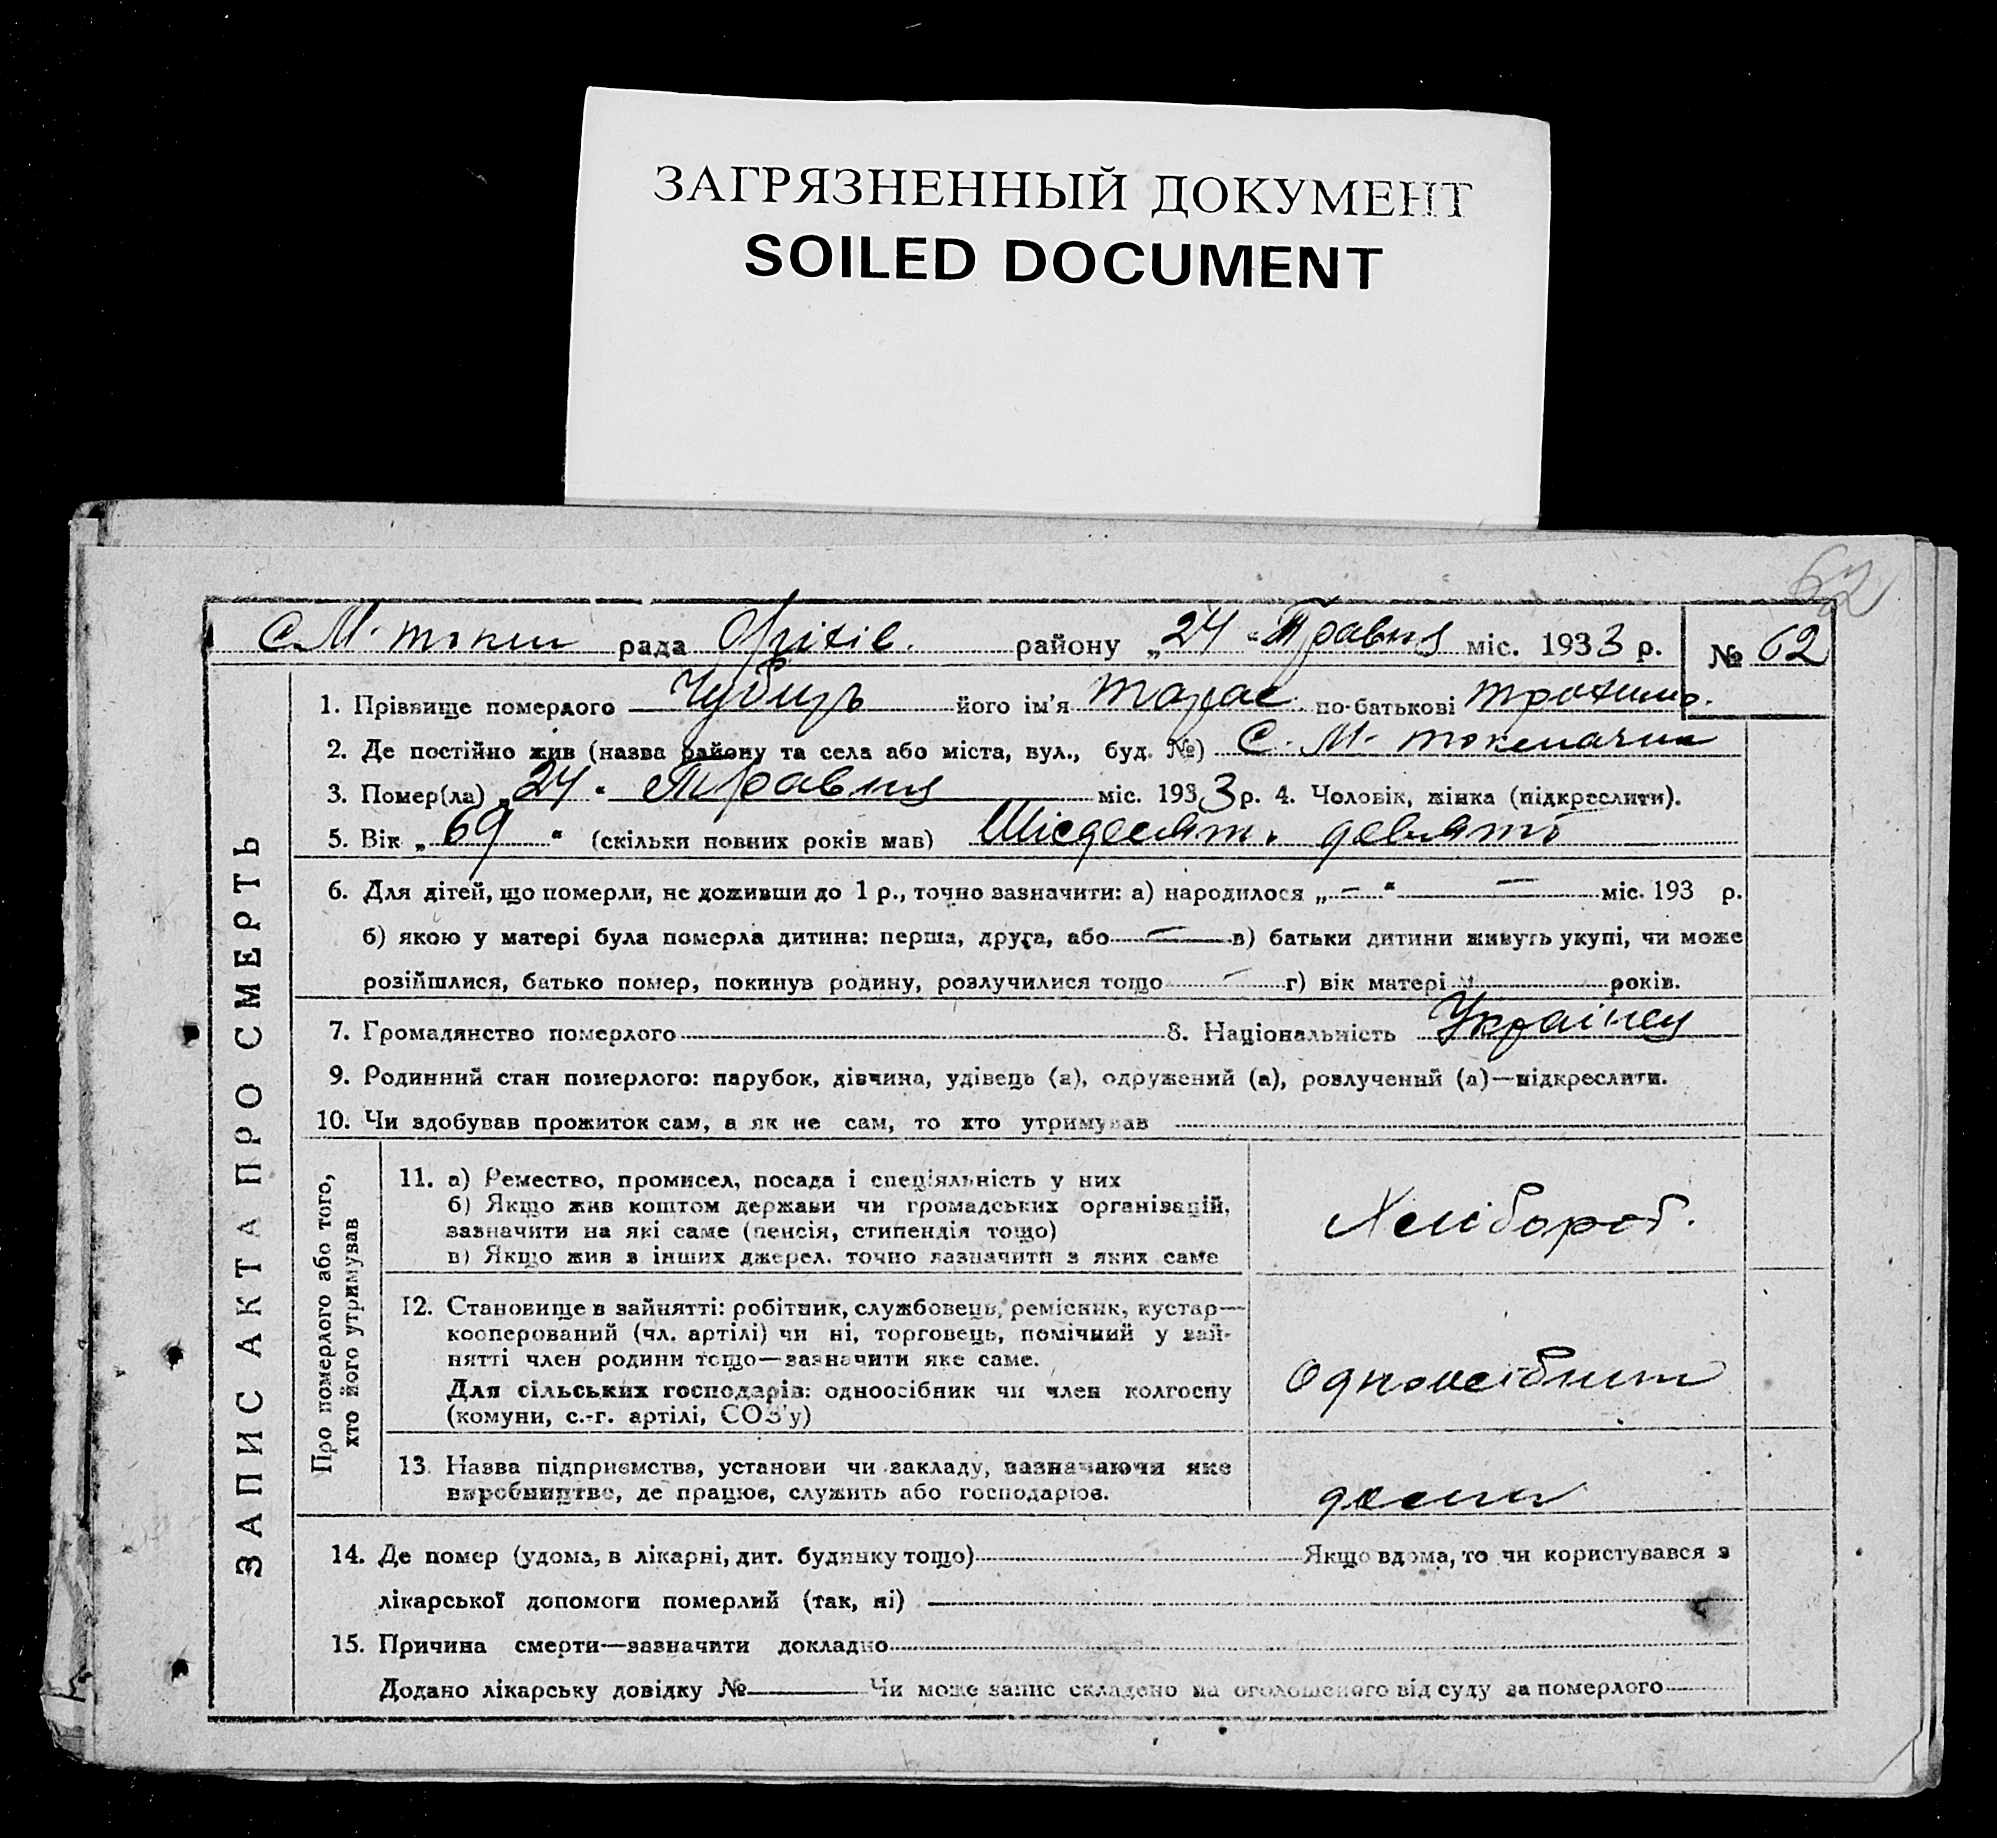 ЗАГРЯЗНЕННЫЙ ДОКУМЕНТ
SOILED DOCUMENT
62
С М. токм рада Оріхів. району „24 “ Травня міс. 1933 р. № 62
1. Прізвище померлого Чубирь його ім'я Тарас по-батькові Трохимо.
2. Де постійно жив (назва району та села або міста, вул., буд. №) С. М-токмачка
3. Помер(ла) „24 “ Травня міс. 1933 р. 4. Чоловік, жінка (підкреслити).
5. Вік „69“ (скільки повних років мав) Шісдесять девять
6. Для дітей, що померли, не доживши до 1 р., точно зазначити: а) народилося „—“ — міс. 193 р.
б) якою у матері була померла дитина: перша, друга, або — в) батьки дитини живуть укупі, чи може
розійшлися, батько помер, покинув родину, розлучилися тощо — г) вік матері років.
7. Громадянство померлого 8. Національність Українец
9. Родинний стан померлого: парубок, дівчина, удівець (а), одружений (а), розлучений (а)—підкреслити.
10. Чи здобував прожиток сам, а як не сам, то хто утримував
ЗАПИС АКТА ПРО СМЕРТЬ
Про померлого або того,
хто його утримував
11. а) Ремество, промисел, посада і спеціяльність у них
б) Якщо жив коштом держави чи громадських організацій,
зазначити на які саме (пенсія, стипендія тощо)
в) Якщо жив з інших джерел, точно зазначити з яких саме
Хлібороб.
12. Становище в зайнятті: робітник, службовець, ремісник, кустар—
кооперований (чл. артілі) чи ні, торговець, помічний у зай-
нятті член родини тощо—зазначити яке саме.
Для сільських господарів: одноосібник чи член колгоспу
(комуни, с.-г. артілі, СОЗ'у)
Одноосібник
13. Назва підприємства, установи чи закладу, зазначаючи яке
виробництво, де працює, служить або господарює.
14. Де помер (удома, в лікарні, дит. будинку тощо) Якщо вдома, то чи користувався з
лікарської допомоги померлий (так, ні)
15. Причина смерти—зазначити докладно
Додано лікарську довідку № Чи може запис складено на оголошеного від суду за померлого